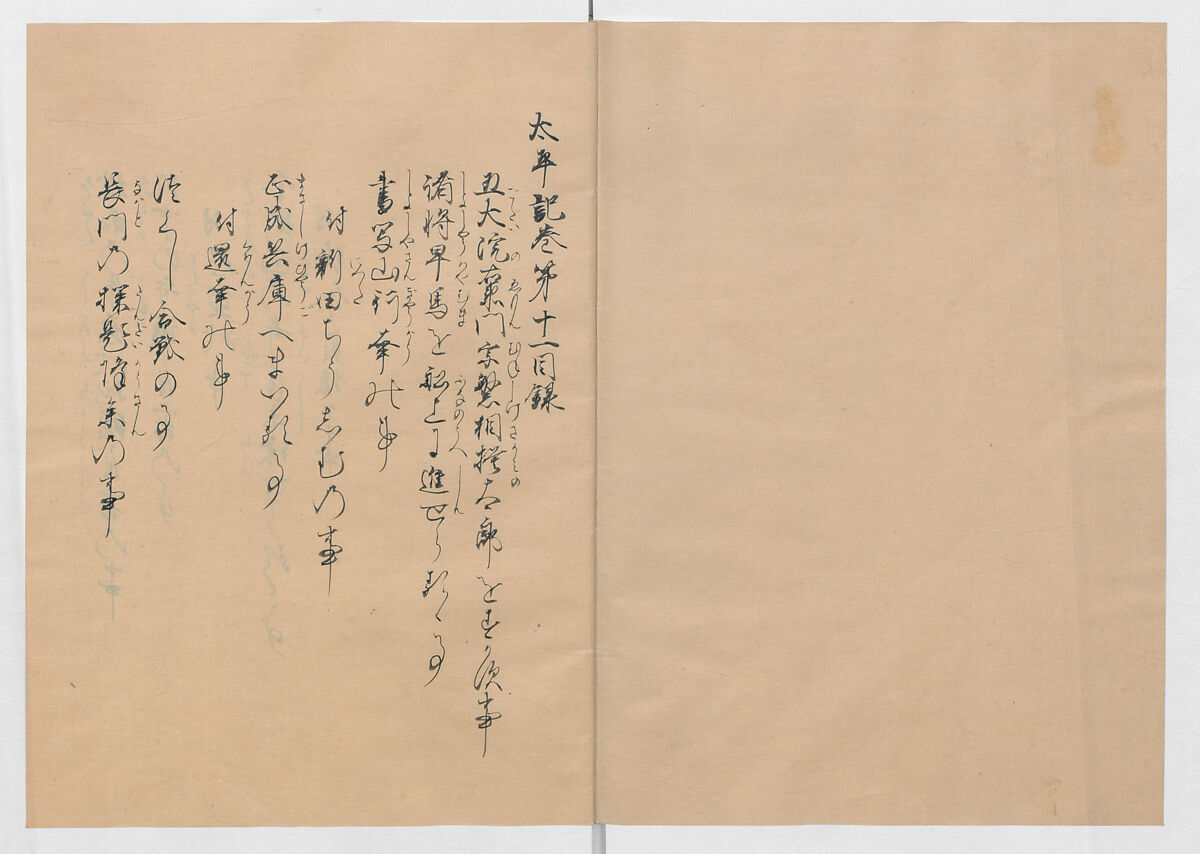 太平記巻第十一目録
五大院右衛門宗繁相模太郎をすかす事
諸将早馬を船上に進せらるゝ事
書写山行幸の事
付新田ちうしむの事
正成兵庫へまいる事
付還幸の事
つくし合戦の事
長門の探題降参の事